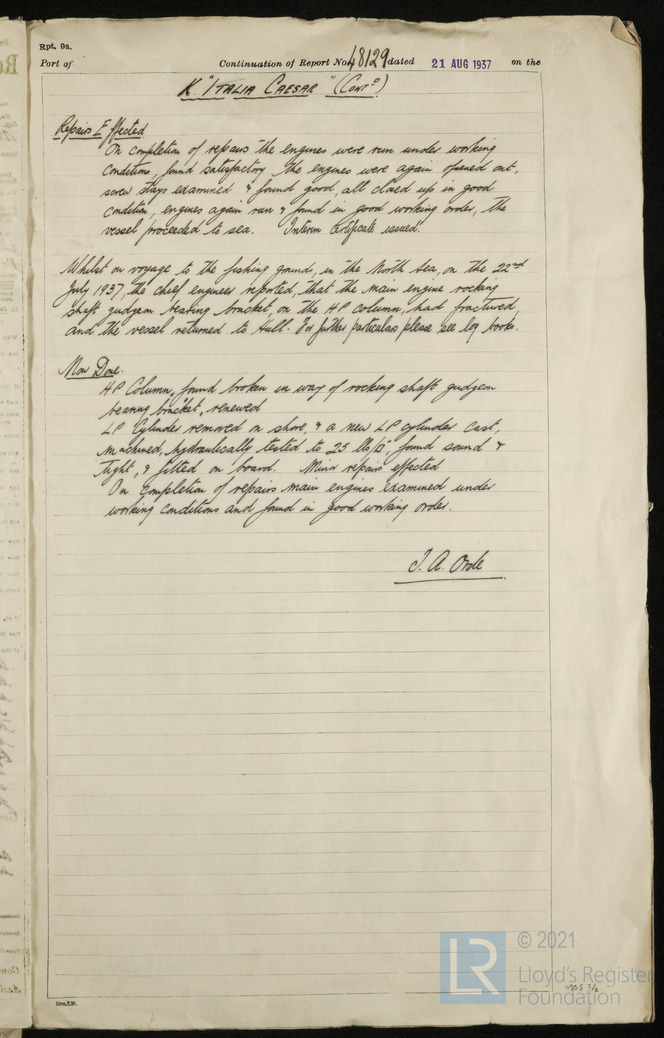 Rpt. 9a.
Port of Continuation of Report No. 48129 dated 21 AUG 1937 on the
K "ITALIA CAESAR" (Contd)
Repairs Effected
On completion of repairs the engines were run under working
conditions, found satisfactory, the engines were again opened out,
screw stays examined & found good, all closed up in good
condition, engines again run & found in good working order, the
vessel proceeded to sea. Interim Certificate issued.
Whilst on voyage to the fishing ground, in the North Sea, on the 22nd
July 1937, the chief engineer reported, that the main engine rocking
shaft gudgeon bearing bracket, on the HP column, had fractured,
and the vessel returned to Hull. For further particulars please see log books.
Now Done.
HP Column, found broken in way of rocking shaft gudgeon
bearing bracket, renewed
LP Cylinder removed on shore, & a new LP cylinder cast,
machined, hydraulically tested to 25 lbs/□", found sound &
tight, & fitted on board. Minor repairs effected
On completion of repairs main engines examined under
working conditions and found in good working order.
J. A. Orde
LR
© 2021
Lloyd's Register
Foundation